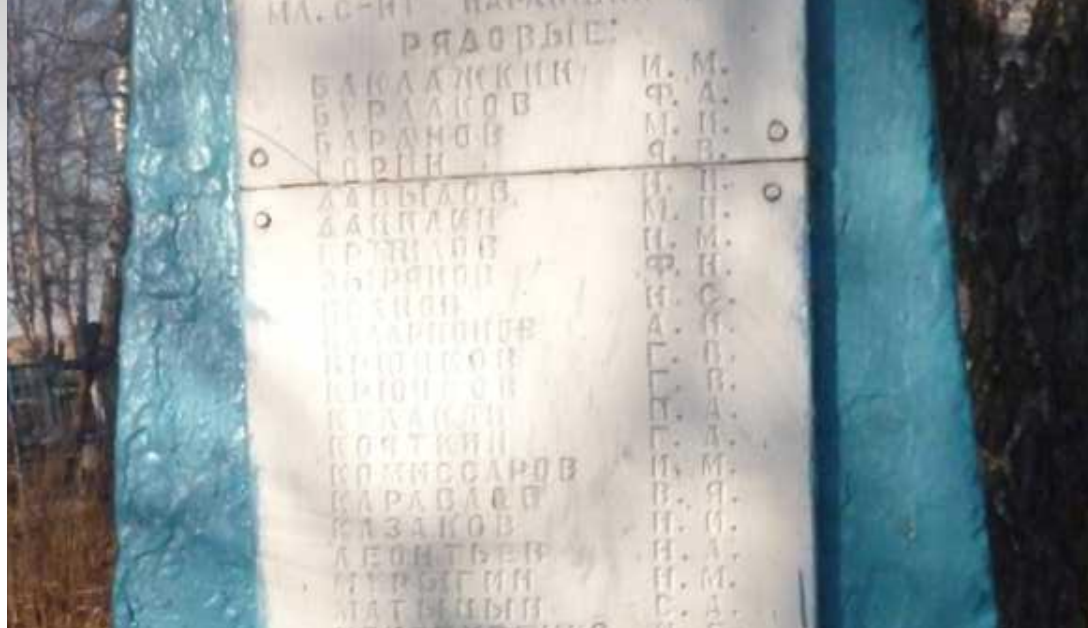 МЛ. С-НТ
РЯДОВЫЕ:
БАКЛАЖКИН И. М.
БУРЛАКОВ Ф. А.
БАРАНОВ М. И.
ГОРИН Я. В.
ДАВЫДОВ
ДАНИЛИН М. П.
Н. М.
ЗЫРЯНОВ Ф. Н.
ИВАНОВ Н. С.
ИЛЛАРИОНОВ А. И.
КРЮЧКОВ Г. В.
КРЮЧКОВ Г. В.
КУЛАКОВ П. А.
КОЧТКИН Г. А.
КОМИССАРОВ И. М.
КАРАВАЕВ В. Я.
КАЗАКОВ Н. И.
ЛЕОНТЬЕВ Н. А.
МУРЫГИН Н. М.
МАТЫЦЫН С. А.